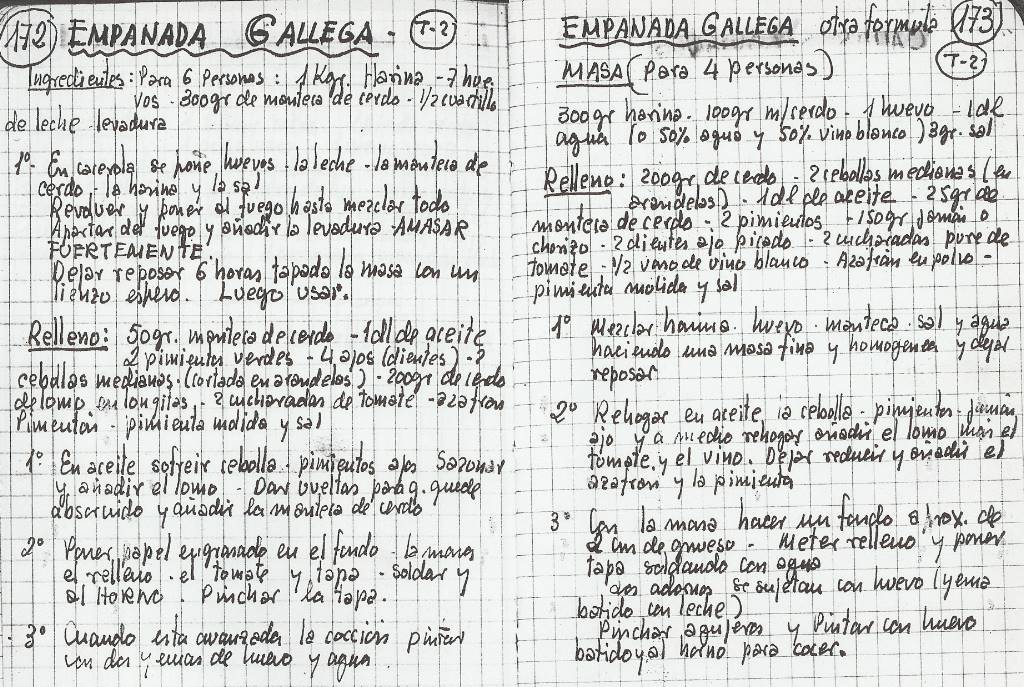 172 EMPANADA GALLEGA - T-2
Ingredientes: Para 6 Personas: 1 Kgr. Harina - 7 hue
vos - 300gr de manteca de cerdo - 1/2 cuartillo
de leche levadura
1º- En cacerola se pone huevos - la leche - la manteca de
cerdo - la harina y la sal
Revolver y poner al fuego hasta mezclar todo
Apartar del fuego y añadir la levadura - AMASAR
FUERTEMENTE
Dejar reposar 6 horas tapada la masa con un
lienzo espeso. Luego usar.
Relleno: 50gr. manteca de cerdo - 1dl de aceite
2 pimientos verdes - 4 ajos (dientes) - 2
cebollas medianas - (cortada en arandelas) - 200gr de cerdo
de lomo en lonjitas - 2 cucharadas de tomate - azafran
Pimenton - pimienta molida y sal
1º En aceite sofreir cebolla - pimientos ajos Sazonar
y añadir el lomo - Dar vueltas para q. quede
absorvido y añadir la manteca de cerdo
2º Poner papel engrasado en el fondo - la masa
el relleno - el tomate y tapa - soldar y
al HORNO. Pinchar la tapa.
3º Cuando esta avanzada la coccion pintar
con dos yemas de huevo y agua
EMPANADA GALLEGA otra formula 173
T-2
MASA (Para 4 personas)
300gr harina - 100gr m/cerdo - 1 huevo - 1dl
agua (o 50% agua y 50% vino blanco) 3gr. sal
Relleno: 200gr de cerdo - 2 cebollas medianas (en
arandelas) - 1dl de aceite - 25gr de
manteca de cerdo - 2 pimientos - 150gr jamón o
chorizo - 2 dientes ajo picado - 2 cucharadas pure de
tomate - 1/2 vaso de vino blanco - Azafrán en polvo -
pimienta molida y sal
1º Mezclar harina - huevo - manteca - sal y agua
haciendo una masa fina y homogenea y dejar
reposar
2º Rehogar en aceite la cebolla - pimientos - jamón
ajo y a medio rehogar añadir el lomo más el
tomate y el vino. Dejar reducir y añadir el
azafran y la pimienta
3º Con la masa hacer un fondo aprox. de
2 cm de grueso - Meter relleno y poner
tapa soldando con agua
Los adornos se sujetan con huevo (yema
batido con leche)
Pinchar agujeros y Pintar con huevo
batido y al horno para cocer.